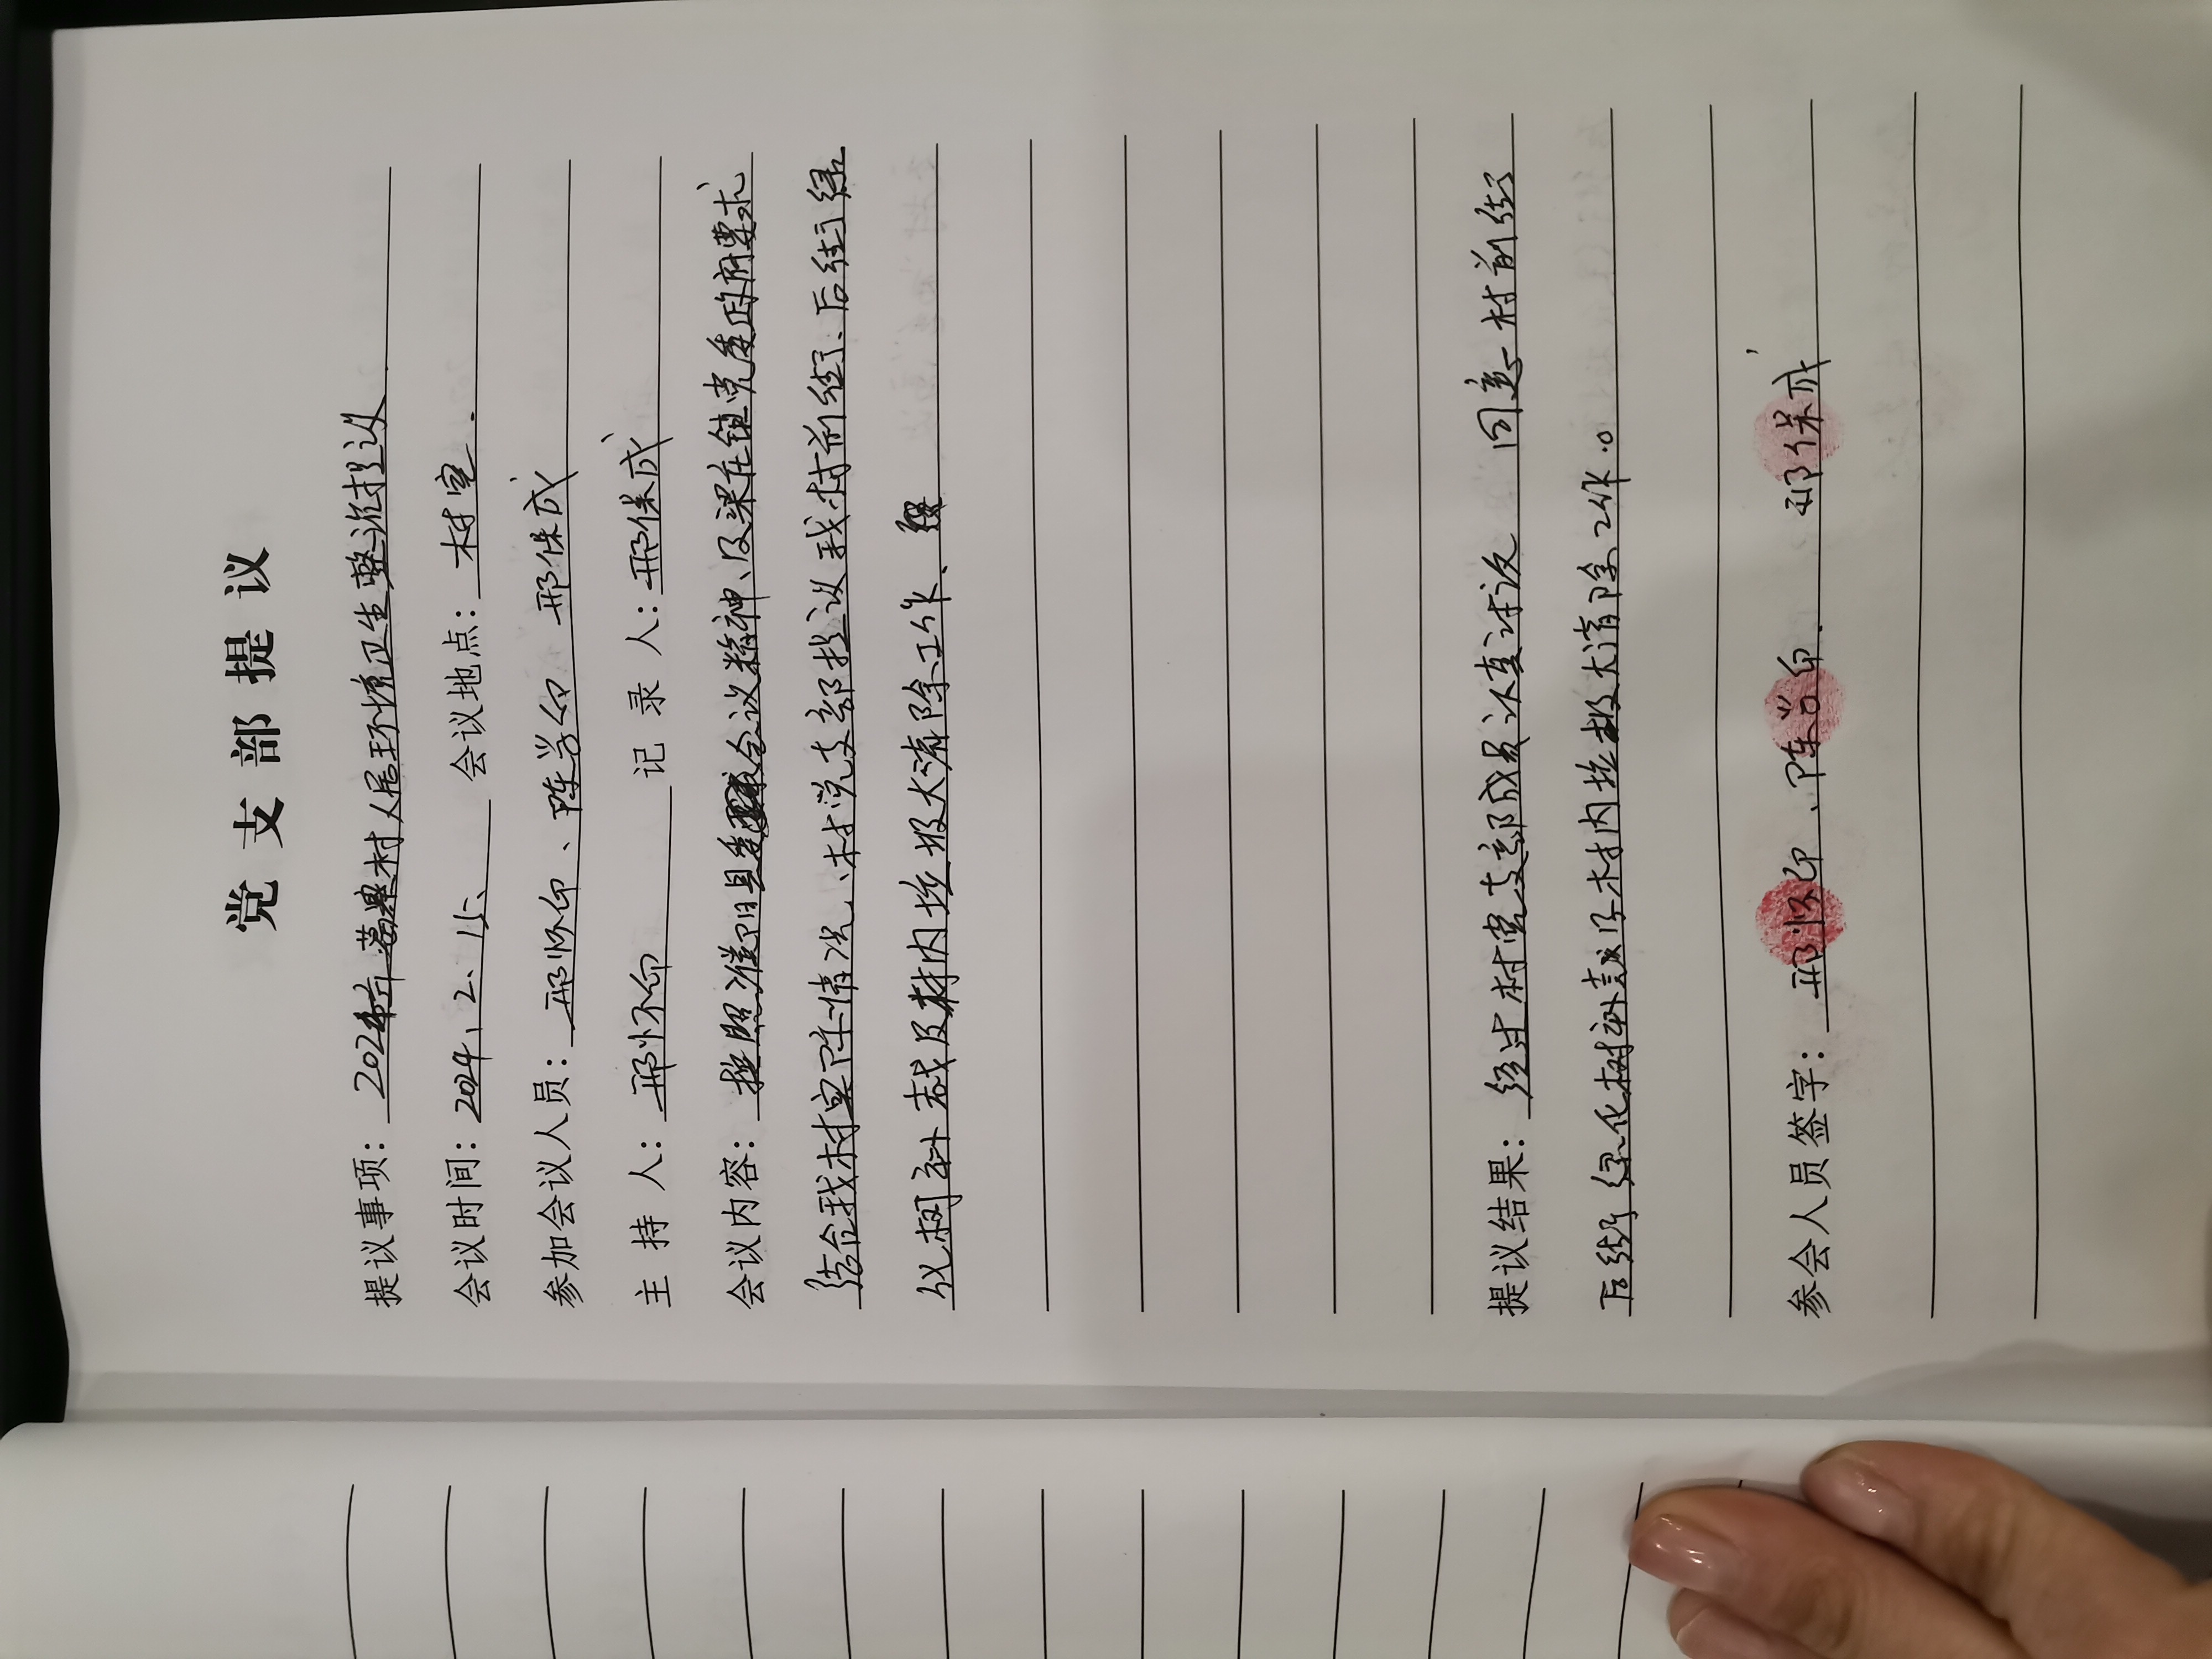 党支部提议
提议事项：2024年 村人居环境卫生整治提议
会议时间：2024、2、15、 会议地点：村室.
参加会议人员：邢怀印、陈学印 邢保成
主持人：邢怀印 记录人：邢保成
会议内容：按照淮阳县委 会议精神、及梁庄镇党委政府要求
结合我村实际情况、村党支部提议我村前街、后街绿
化树补栽及村内垃圾大清除工作、
提议结果：经过村党支部成员认真讨议 同意村前街
后街绿化树补栽及村内垃圾大清除工作。
参会人员签字：邢怀印、陈学印. 邢保成